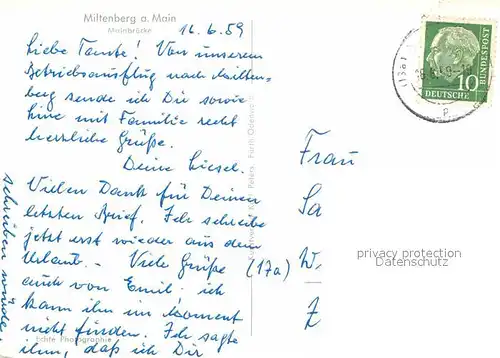 Miltenberg a. Main
Mainbrücke
16.6.59
Liebe Tante! Von unserem
Betriebsausflug nach Milten-
berg sende ich Dir sowie
mit Familie recht
herzliche Grüße.
Deine Liesel.
Vielen Dank für Deinen
letzten Brief. Ich schreibe
jetzt erst wieder aus dem
Urlaub. - Viele Grüße
auch von Emil. ich
kann ihn im Moment
nicht finden. Ich sagte
ihm, daß ich Dir
schreiben würde.
Echte Photographie
Peters Fürth Odenw.
DEUTSCHE
BUNDESPOST
10
Frau
Sa
W.
(17a)
Z
privacy protection
Datenschutz